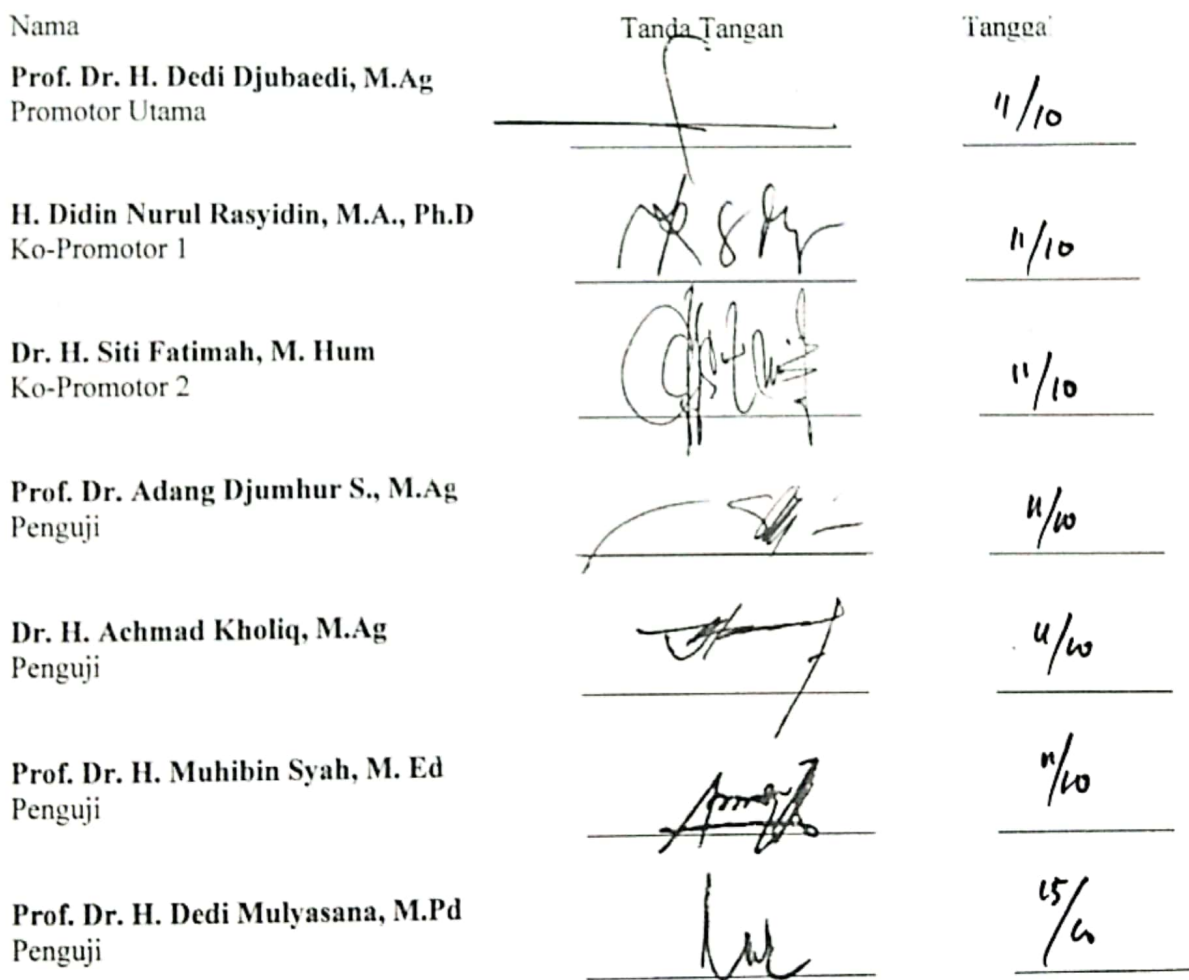 Nama Tanda Tangan Tangga
Prof. Dr. H. Dedi Djubaedi, M.Ag
Promotor Utama 11/10
H. Didin Nurul Rasyidin, M.A., Ph.D
Ko-Promotor 1 11/10
Dr. H. Siti Fatimah, M. Hum
Ko-Promotor 2 11/10
Prof. Dr. Adang Djumhur S., M.Ag
Penguji 11/10
Dr. H. Achmad Kholiq, M.Ag
Penguji 11/10
Prof. Dr. H. Muhibin Syah, M. Ed
Penguji 11/10
Prof. Dr. H. Dedi Mulyasana, M.Pd
Penguji 15/10